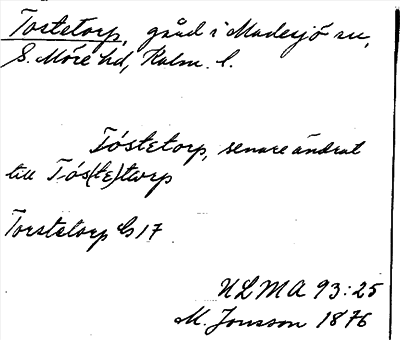 Tostetorp, gård i Madesjö sn,
S. Möre hd, Kalm. l.
Tóstetorp, senare ändrat
till Tós(te)torp
Torstetorp G17
ULMA 93:25
M. Jonsson 1876